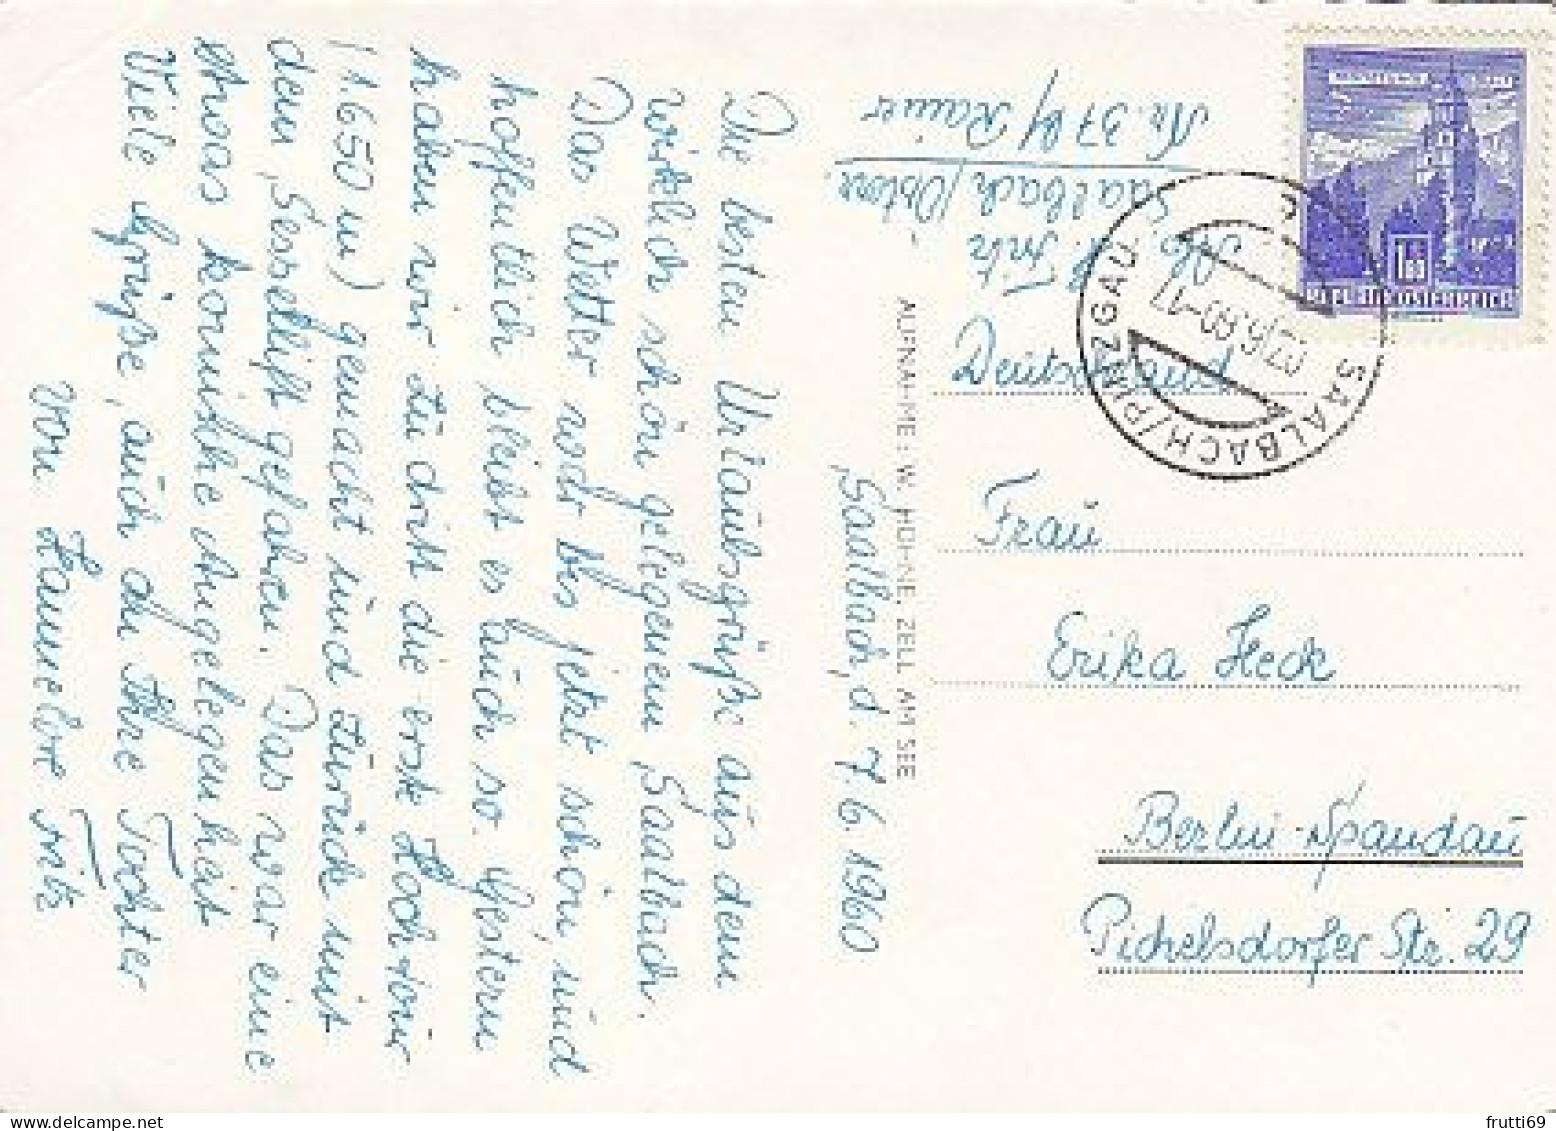 Saalbach, d. 7.6.1960
Die besten Urlaubsgrüße aus dem
wirklich schön gelegenem Saalbach.
Das Wetter war bis jetzt schön, und
hoffentlich bleibt es auch so. Gestern
haben wir zu dritt die erste Hochtour
(1.650 m) gemacht und zurück mit
dem Sessellift gefahren. Das war eine
etwas komische Angelegenheit
Viele Grüße, auch an Ihre Tochter
von Hannelore Fritz
AUFNAHME: W. HÖHNE, ZELL AM SEE
Abs. H. Fritz
Saalbach/Österr.
Nr. 37 b/ Rainer
SAALBACH/PINZGAU
REPUBLIK ÖSTERREICH
Deutschland
Frau
Erika Heck
Berlin-Spandau
Pichelsdorfer Str. 29
frutti69